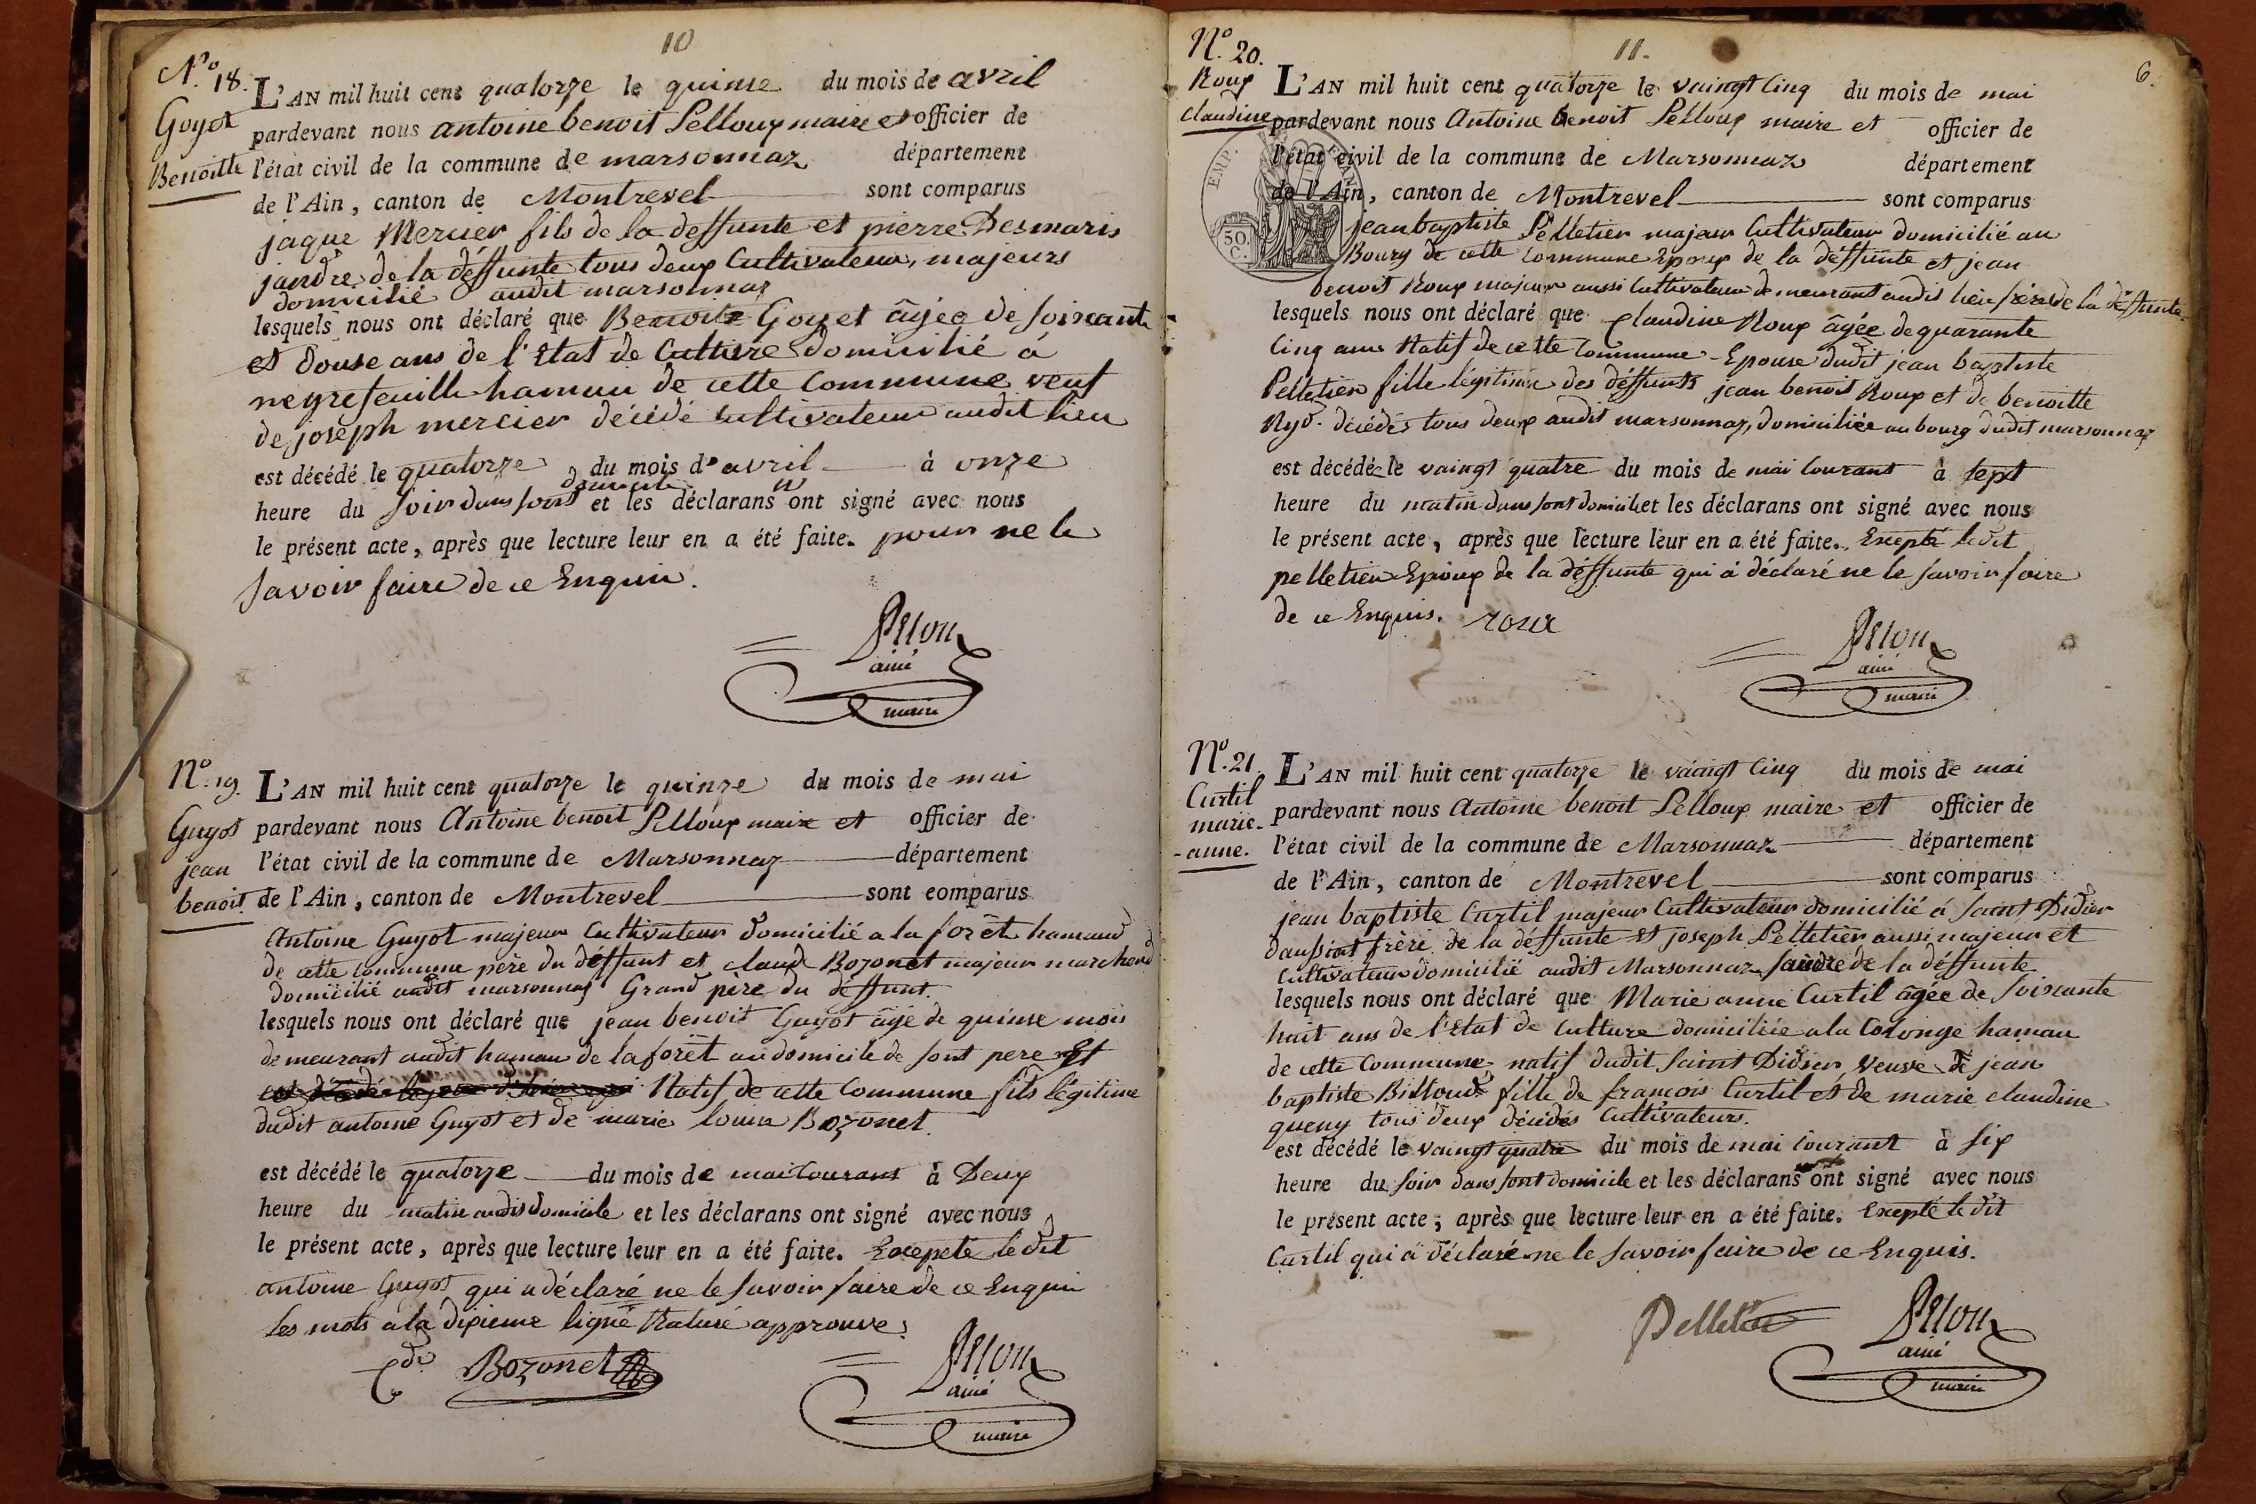 10
N.º 18.
Goyot
Benoitte
L'AN mil huit cent quatorze le quinse du mois de avril
pardevant nous antoine benoit Pelloux maire et officier de
l'état civil de la commune de marsonnaz département
de l'Ain, canton de Montrevel sont comparus
jaque Mercier fils de la deffunte et pierre Desmaris
jandre de la déffunte tous deux Cultivateur, majeurs
domicilié audit marsonnaz
lesquels nous ont déclaré que Benoite Goyet âgée de soixante
et douse ans de l'Etat de Culture domicilié à
neyrefeuille hamau de cette Commune veuf
de joseph mercier décédé Cultivateur audit lieu
est décédé le quatorze du mois d'avril à onze
heure du soir dans sont domicile et les déclarans n'ont signé avec nous
le présent acte, après que lecture leur en a été faite. pour ne le
savoir faire de ce Enquis.
Pellou
ainé
maire
Nº. 19.
Guyot
jean
benoit.
L'AN mil huit cent quatorze le quinze du mois de mai
pardevant nous Antoine benoit Pelloux maire et officier de
l'état civil de la commune de Marsonnaz département
de l'Ain, canton de Montrevel sont comparus
Antoine Guyot majeur Cultivateur domicilié a la forêt hamaud
de cette commune père du déffunt et claude Bozonet majeur marchand
domicilié audit marsonnaz Grand père du deffunt.
lesquels nous ont déclaré que jean benoit Guyot âgé de quinse mois
demeurant audit hamau de la forêt au domicile de sont pere Est
Natif de cette Commune fils légitime
dudit antoine Guyot et de marie louisa Bozonet.
est décédé le quatorze du mois de mai Courant à Deux
heure du matin audit domicile et les déclarans ont signé avec nous
le présent acte, après que lecture leur en a été faite. Excepté le dit
antoine Guyot qui a déclaré ne le savoir faire de ce Enquis
les mots à la dixieme ligne Raturé approuve.
Cde Bozonet
Pellou
ainé
maire
11.
6.
Nº. 20.
Roux
Claudine
L'AN mil huit cent quatorze le vaingt Cinq du mois de mai
pardevant nous Antoine Benoit Pelloux maire et officier de
l'état civil de la commune de Marsonnaz département
de l'Ain, canton de Montrevel sont comparus
EMP. FRAN
50.
C.
jean baptiste Pelletier majeur Cultivateur domicilié au
Bourg de cette Commune Epoux de la déffunte et jean
benoit Roux majeur aussi Cultivateur demeurant audit lieu frère de la déffunte
lesquels nous ont déclaré que Claudine Roux âgée de quarante
Cinq ans Natif de cette Commune Epouse dudit jean baptiste
Pelletier fille légitime des déffunts jean benoit Roux et de benoitte
Ryd. décédés tous deux audit marsonnaz, domiciliée au bourg dudit marsonnaz
est décédée le vaingt quatre du mois de mai Courant à sept
heure du matin dans sont domicile et les déclarans ont signé avec nous
le présent acte, après que lecture leur en a été faite. Excepté le dit
pelletier Epoux de la déffunte qui à déclaré ne le savoir faire
de ce Enquis. roux
Pellou
ainé
maire
Nº. 21.
Curtil
marie-
-anne.
L'AN mil huit cent quatorze le vaingt Cinq du mois de mai
pardevant nous Antoine benoit Pelloux maire et officier de
l'état civil de la commune de Marsonnaz département
de l'Ain, canton de Montrevel sont comparus
jean baptiste Curtil majeur Cultivateur domicilié à saint Didier
daussiat frère de la déffunte et joseph Pelletier aussi majeur et
Cultivateur domicilié audit Marsonnaz jandre de la déffunte
lesquels nous ont déclaré que Marie anne Curtil âgée de soixante
huit ans de l'Etat de Culture domiciliée a la Colonge hamau
de cette Commune natif dudit Saint Didier, veuve de jean
baptiste Billoud fille de francois Curtil et de marie claudine
queny tous deux décédés Cultivateurs.
est décédé le vaingt quatre du mois de mai Courant à six
heure du soir dans sont domicile et les déclarans ont signé avec nous
le présent acte, après que lecture leur en a été faite. Excepté le dit
Curtil qui a déclaré ne le savoir faire de ce Enquis.
Pelletie
Pellou
ainé
maire